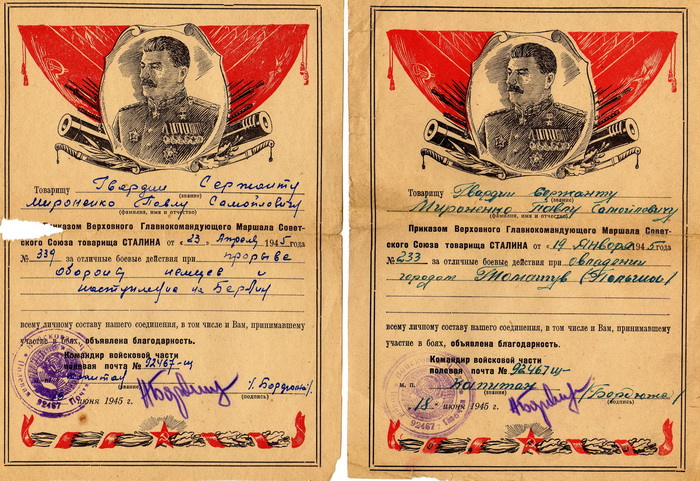 Товарищу Гвардии Сержанту
(звание)
Мироненко Павлу Самойловичу
(фамилия, имя и отчество)
риказом Верховного Главнокомандующего Маршала Совет-
ского Союза товарища СТАЛИНА от «23» Апреля 1945 года
№ 339 за отличные боевые действия при прорыве
обороны немцев и
наступление на Берлин
всему личному составу нашего соединения, в том числе и Вам, принимавшему
участие в боях, объявлена благодарность.
Командир войсковой части
полевая почта № 92467-щ
(звание)
июня 1945 г.
(Бордюжа)
(подпись)
92467
Товарищу Гвардии Сержанту
(звание)
Мироненко Павлу Самойловичу
(фамилия, имя и отчество)
Приказом Верховного Главнокомандующего Маршала Совет-
ского Союза товарища СТАЛИНА от «19 Января 1945 года
№ 233 за отличные боевые действия при овладении
городом Томашув (Польша)
всему личному составу нашего соединения, в том числе и Вам, принимавшему
участие в боях, объявлена благодарность.
Командир войсковой части
полевая почта № 92467щ
м. п. Капитан
(звание)
„18" июня 1945 г.
(Бордюжа)
(подпись)
92467